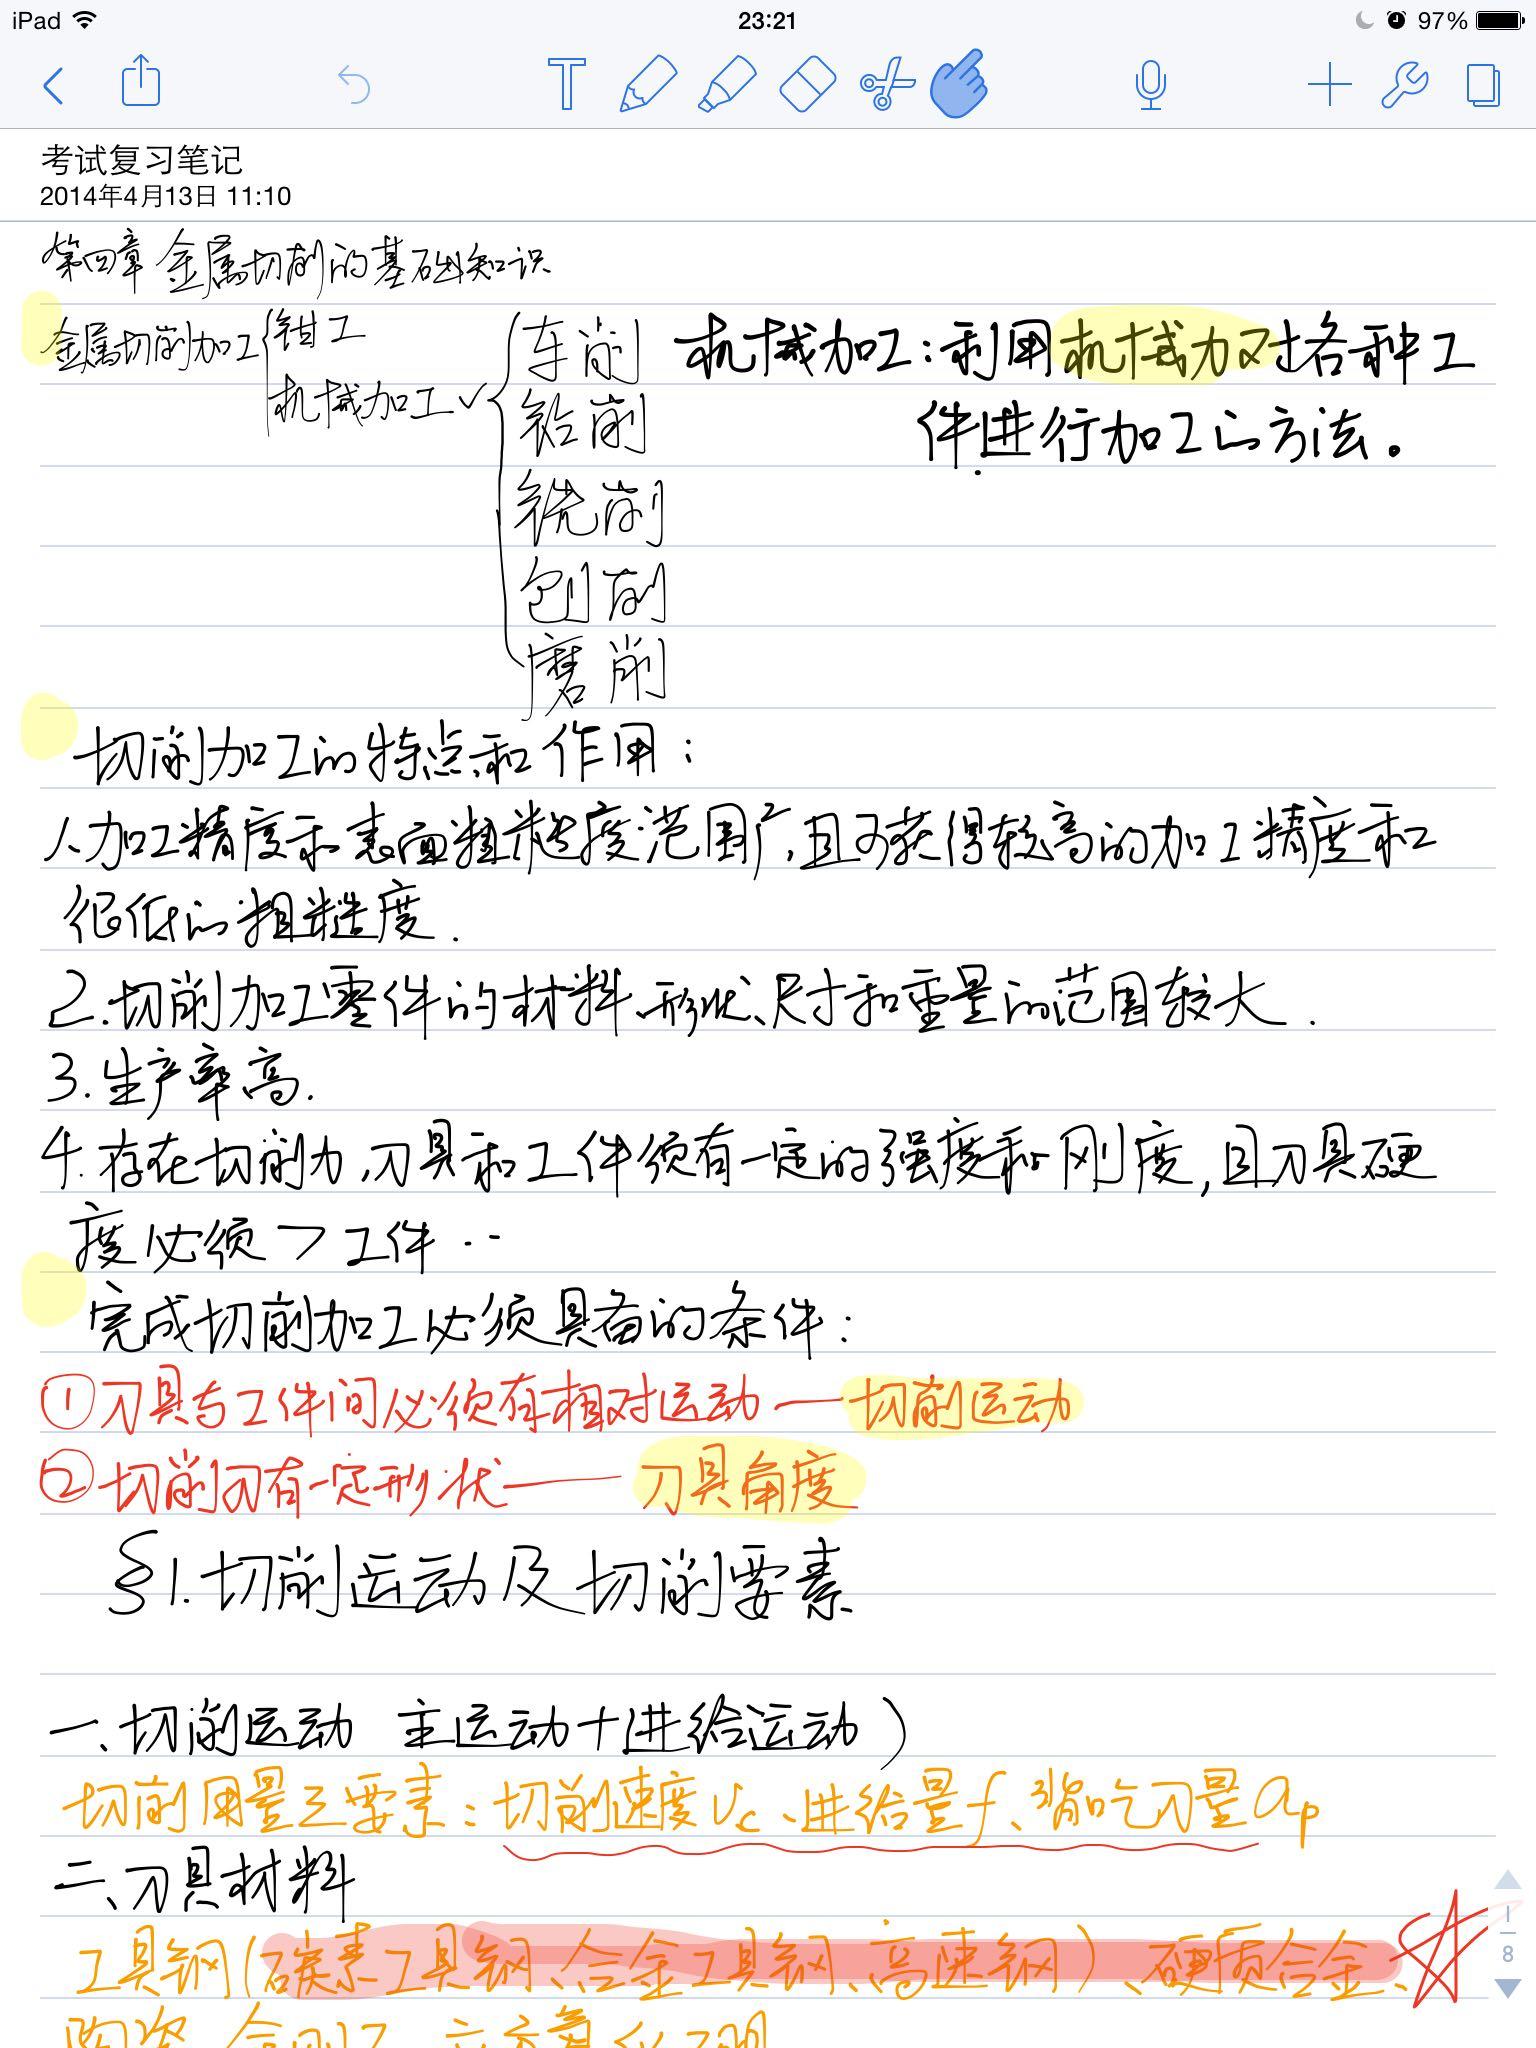 iPad
23:21
97%
考试复习笔记
2014年4月13日 11:10
第四章 金属切削的基础知识
金属切削加工{钳工
机械加工✓{车削
钻削
铣削
刨削
磨削
机械加工:利用机械力对各种工
件进行加工的方法。
切削加工的特点和作用:
1、加工精度和表面粗糙度范围广,且可获得较高的加工精度和
很低的粗糙度.
2.切削加工零件的材料、形状、尺寸和重量的范围较大.
3.生产率高.
4.存在切削力,刀具和工件须有一定的强度和刚度,且刀具硬
度必须>工件..
完成切削加工必须具备的条件:
①刀具与工件间必须有相对运动——切削运动
②切削刃有一定形状——刀具角度
§1.切削运动及切削要素
一、切削运动 主运动+进给运动)
切削用量三要素:切削速度Vc、进给量f、背吃刀量ap
二、刀具材料
工具钢(碳素工具钢、合金工具钢、高速钢)、硬质合金、
1
8